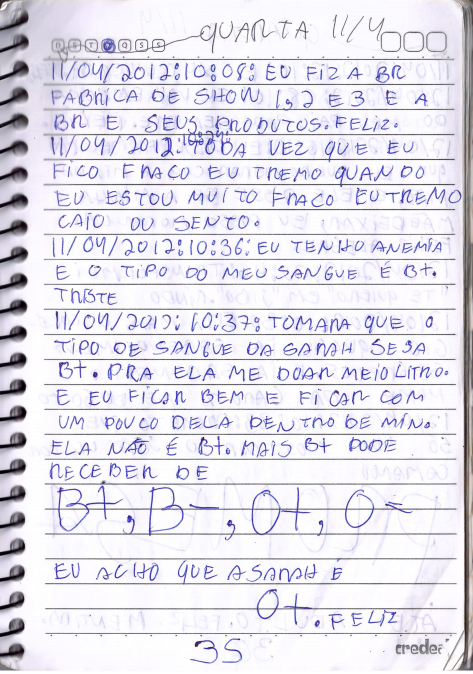 QUARTA 11/4
D S T Q Q S S
11/04/2012:10:08: EU FIZ A BR
FABRICA DE SHOW 1,2 E 3 E A
BR E SEUS PRODUTOS. FELIZ.
11/04/2012:10:24: TODA VEZ QUE EU
FICO FRACO EU TREMO QUANDO
EU ESTOU MUITO FRACO EU TREMO
CAIO OU SENTO.
11/04/2012:10:36: EU TENHO ANEMIA
E O TIPO DO MEU SANGUE É B+.
TRISTE
11/04/2012:10:37: TOMARA QUE O
TIPO DE SANGUE DA SARAH SEJA
B+. PRA ELA ME DOAR MEIO LITRO.
E EU FICAR BEM E FICAR COM
UM POUCO DELA DENTRO DE MIN.
ELA NÃO É B+. MAIS B+ PODE
RECEBER DE
B+, B-, O+, O-
EU ACHO QUE A SARAH É
O+. FELIZ
35
credeal